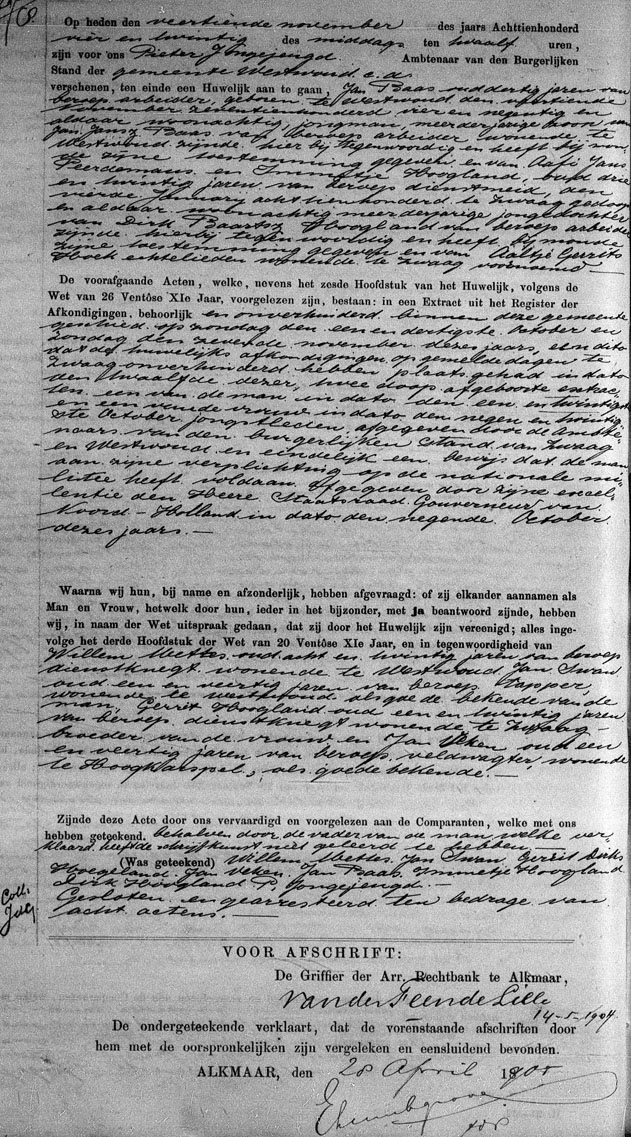 Op heden den veertiende november des jaars Achttienhonderd
vier en twintig des middags ten twaalf uren,
zijn voor ons Pieter Jongejeugd. Ambtenaar van den Burgerlijken
Stand der gemeente Westwoud c.a.
verschenen, ten einde een Huwelijk aan te gaan, Jan Baas oud dertig jaren van
beroep arbeider, geboren te Westwoud den veertiende
zeventienhonderd vier en negentig en
aldaar woonachtig, jongman meerderjarige zoon van
Jan Jansz Baas van beroep arbeider wonende te
Westwoud zijnde hier bij tegenwoordig en heeft bij mon-
de zijne toestemming gegeven en van Aafje Jans
Peerdemans en Immetje Hoogland, oud drie
en twintig jaren van beroep dienstmeid den
vierde January achttienhonderd te Zwaag gedoopt
en aldaar woonachtig meerderjarige jongedochter
van Dirk Baartsz Hoogland van beroep arbeider
zijnde hierbij tegenwoordig en heeft bij monde
zijne toestemming gegeven en van Aaltje Gerrits
Hoek echtelieden wonende te Zwaag voornoemd
De voorafgaande Acten, welke, nevens het zesde Hoofdstuk van het Huwelijk, volgens de
Wet van 26 Ventôse XIe Jaar, voorgelezen zijn, bestaan: in een Extract uit het Register der
Afkondigingen, behoorlijk en onverhinderd binnen deze gemeente
geschied op zondag den een en dertigste October en
zondag den zevende november dezes jaars, een dito
dat de huwelijks afkondigingen op gemelde dagen te
Zwaag onverhinderd hebben plaats gehad in dato
den twaalfde dezer, twee doop afgeboorte extrac-
ten een van de man in dato den een en twintigste
en een van de vrouw in dato den negen en twintig-
ste October jongstleden, afgegeven door de Ambte-
naars van den burgerlijken stand van Zwaag
en Westwoud en eindelijk een bewijs dat de man
aan zijne verplichting op de nationale mi-
litie heeft voldaan afgegeven door zijne excel-
lentie den Heere Staatsraad Gouverneur van
Noord-Holland in dato den negende October
dezes jaars.—
Waarna wij hun, bij name en afzonderlijk, hebben afgevraagd: of zij elkander aannamen als
Man en Vrouw, hetwelk door hun, ieder in het bijzonder, met ja beantwoord zijnde, hebben
wij, in naam der Wet uitspraak gedaan, dat zij door het Huwelijk zijn vereenigd; alles inge-
volge het derde Hoofdstuk der Wet van 20 Ventôse XIe Jaar, en in tegenwoordigheid van
Willem Mettes oud acht en twintig jaren van beroep
dienstknegt wonende te Westwoud Jan Swan
oud een en veertig jaren van beroep tapper,
wonende te Westwoud als goede bekende van de
man, Gerrit Hoogland oud een en twintig jaren
van beroep dienstknegt wonende te Zwaag
broeder van de vrouw en Jan Veken oud een
en veertig jaren van beroep veldwagter, wonende
te Hoogkarspel, als goede bekende.—
Zijnde deze Acte door ons vervaardigd en voorgelezen aan de Comparanten, welke met ons
hebben geteekend. behalven door de vader van de man welke ver-
klaard heeft de schrijfkunst niet geleerd te hebben—
(Was geteekend) Willem Mettes Jan Swan Gerrit Dirks
Hoegeland. Jan Veken. Jan Baas Immetje Hoogland
Dirk Hoogland P. Jongejeugd.—
Gesloten en gearresteerd ten bedrage van
acht actens.—
Coll:
VOOR AFSCHRIFT:
De Griffier der Arr. Rechtbank te Alkmaar,
van der Feen de Lille
14-5-1904
De ondergeteekende verklaart, dat de vorenstaande afschriften door
hem met de oorspronkelijken zijn vergeleken en eensluidend bevonden.
ALKMAAR, den 28 April 1905